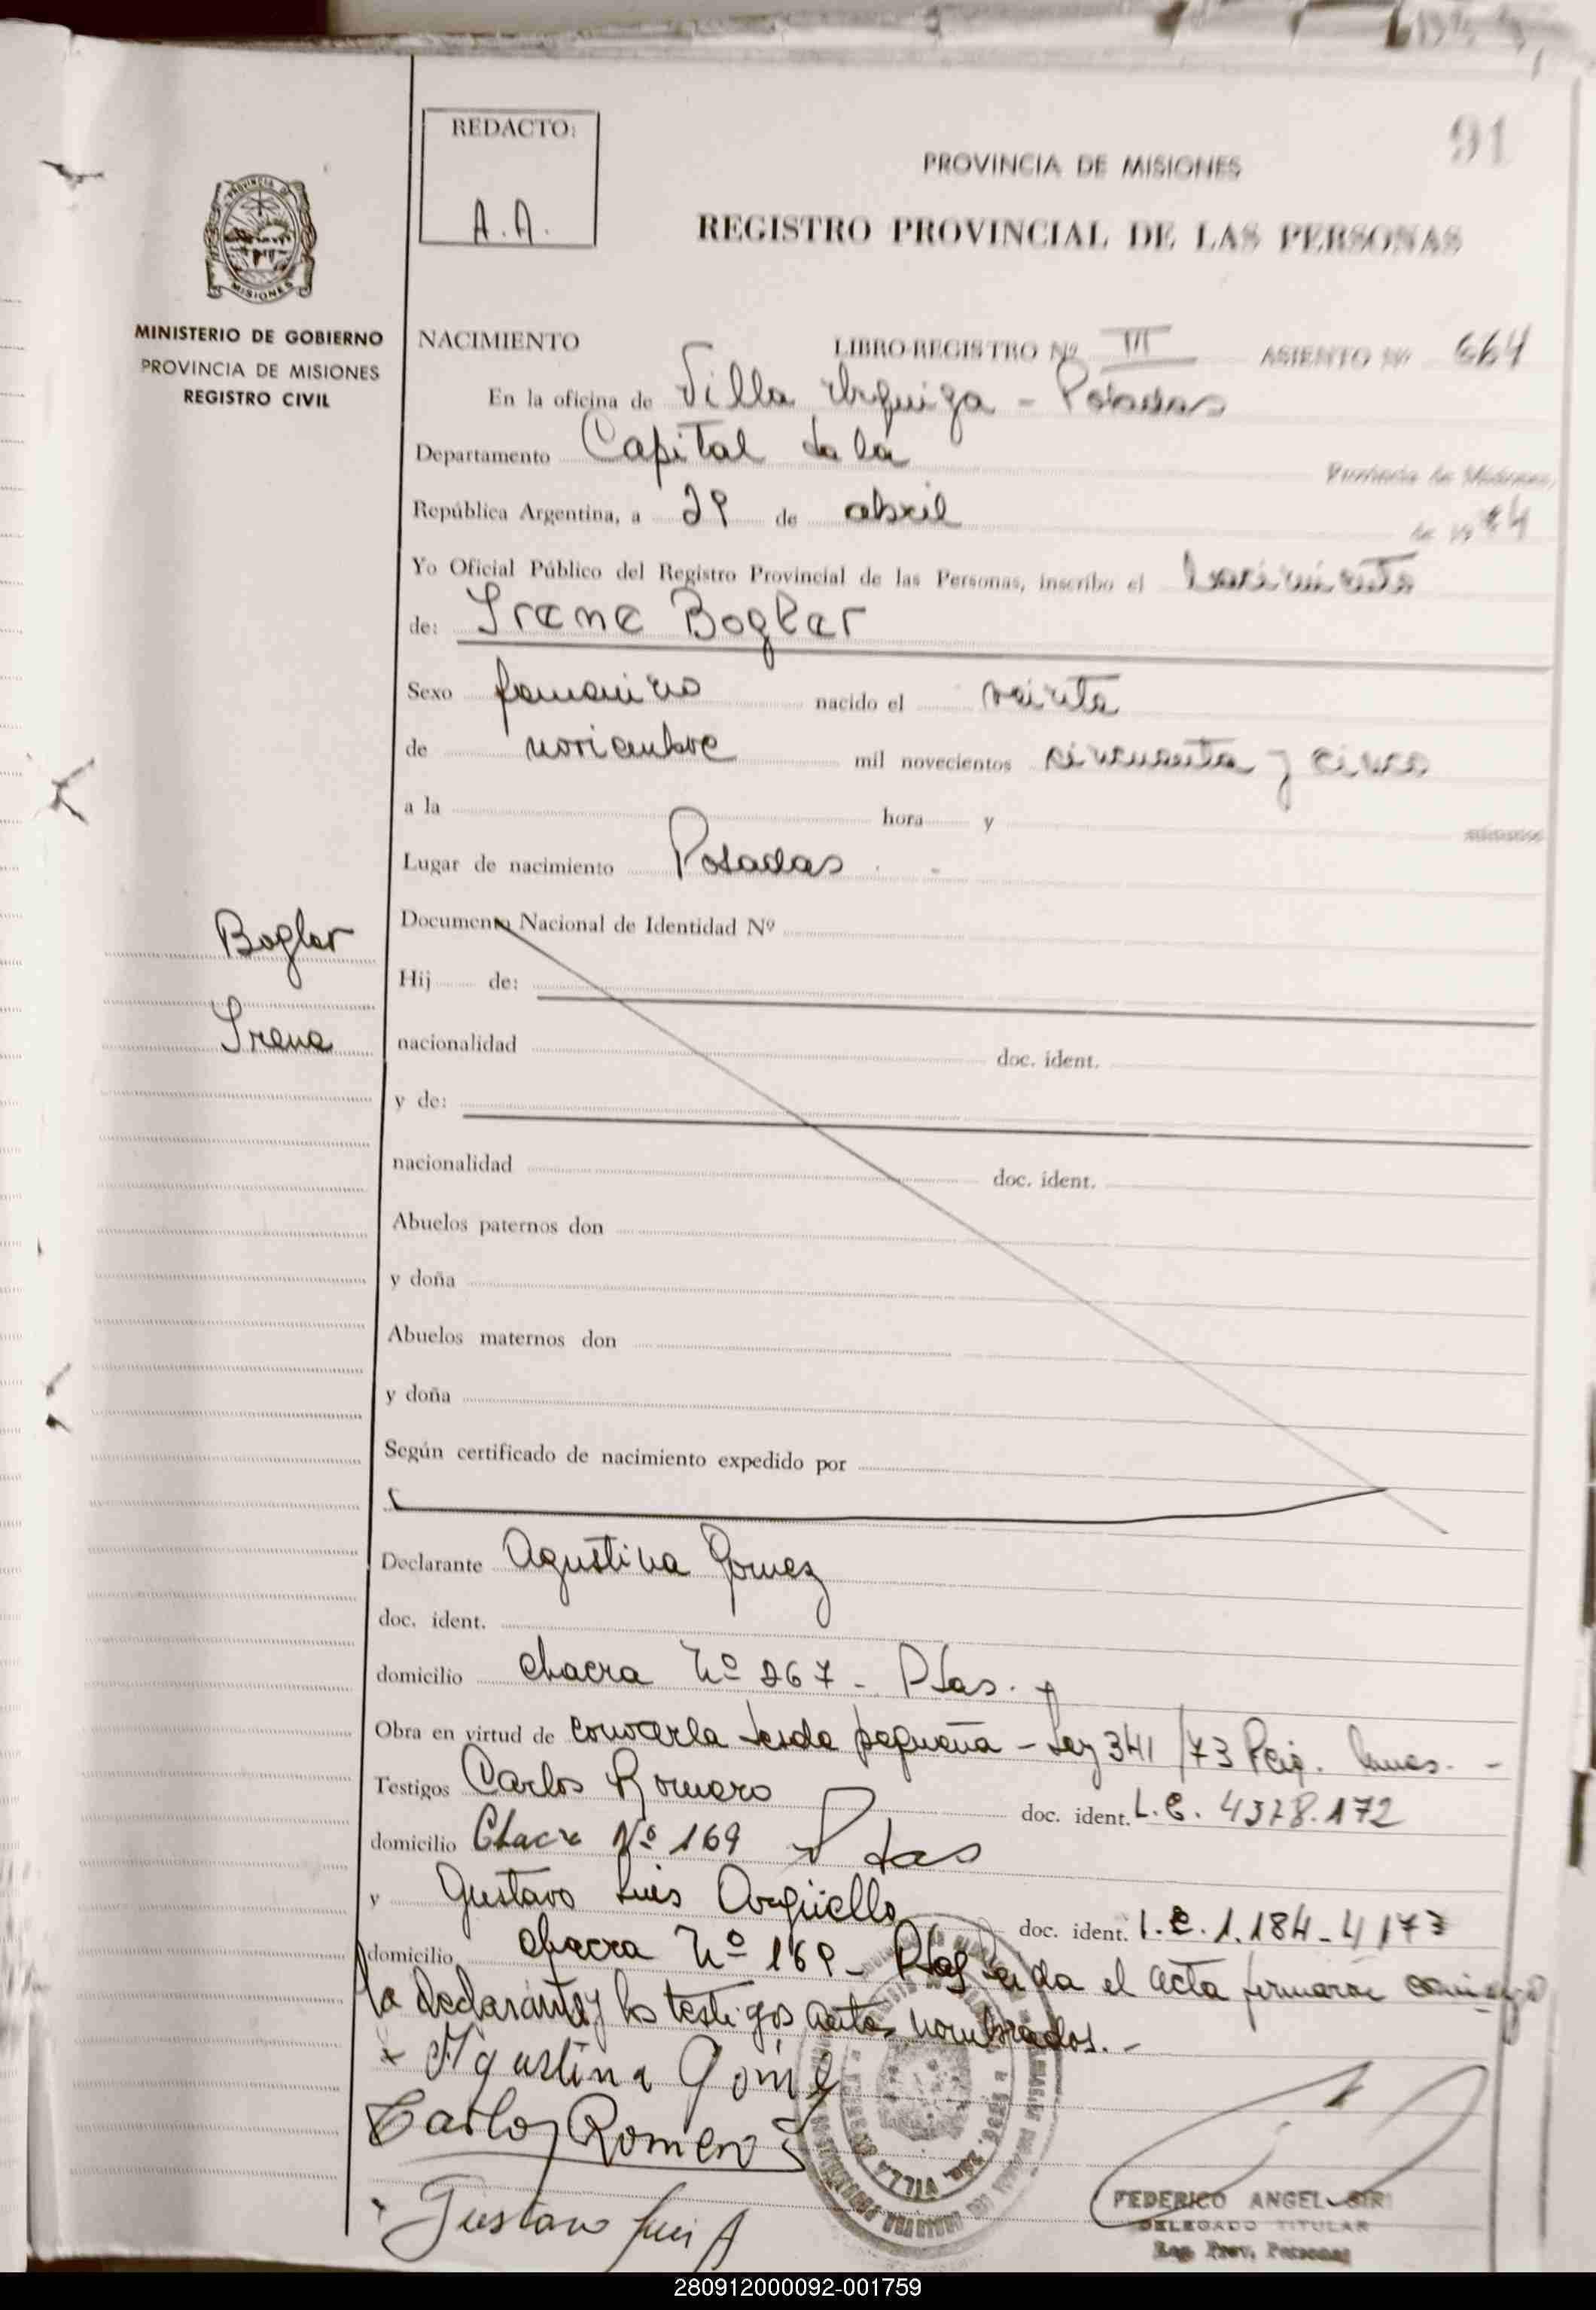 91
REDACTO:
A.A.
PROVINCIA DE MISIONES
REGISTRO PROVINCIAL DE LAS PERSONAS
PROVINCIA DE
MISIONES
MINISTERIO DE GOBIERNO
PROVINCIA DE MISIONES
REGISTRO CIVIL
NACIMIENTO LIBRO-REGISTRO Nº III ASIENTO Nº 664
En la oficina de Villa Urquiza - Posadas
Departamento Capital de la Provincia de Misiones,
República Argentina, a 29 de abril de 1974
Yo Oficial Público del Registro Provincial de las Personas, inscribo el nacimiento
de: Irene Boglar
Sexo femenino nacido el veinte
de noviembre mil novecientos cincuenta y cinco
a la hora y minutos
Lugar de nacimiento Posadas . -
Boglar
Irene
Documento Nacional de Identidad Nº
Hij de:
nacionalidad doc. ident.
y de:
nacionalidad doc. ident.
Abuelos paternos don
y doña
Abuelos maternos don
y doña
Según certificado de nacimiento expedido por
Declarante Agustina Gomez
doc. ident.
domicilio chacra Nº 267 - Pdas.
Obra en virtud de conocerla desde pequeña - Ley 341/73
Testigos Carlos Romero doc. ident. L.E. 4378.172
domicilio Chacra Nº 169 Pdas
y Gustavo Luis Argüello doc. ident. L.E. 1.184-4173
domicilio chacra Nº 169 - Pdas Leida el acta firmaron conmigo
la declarante y los testigos antes nombrados. -
Agustina Gómez
Carlos Romero
Gustavo Luis A
FEDERICO ANGEL SIRI
DELEGADO TITULAR
Reg. Prov. Personas
280912000092-001759